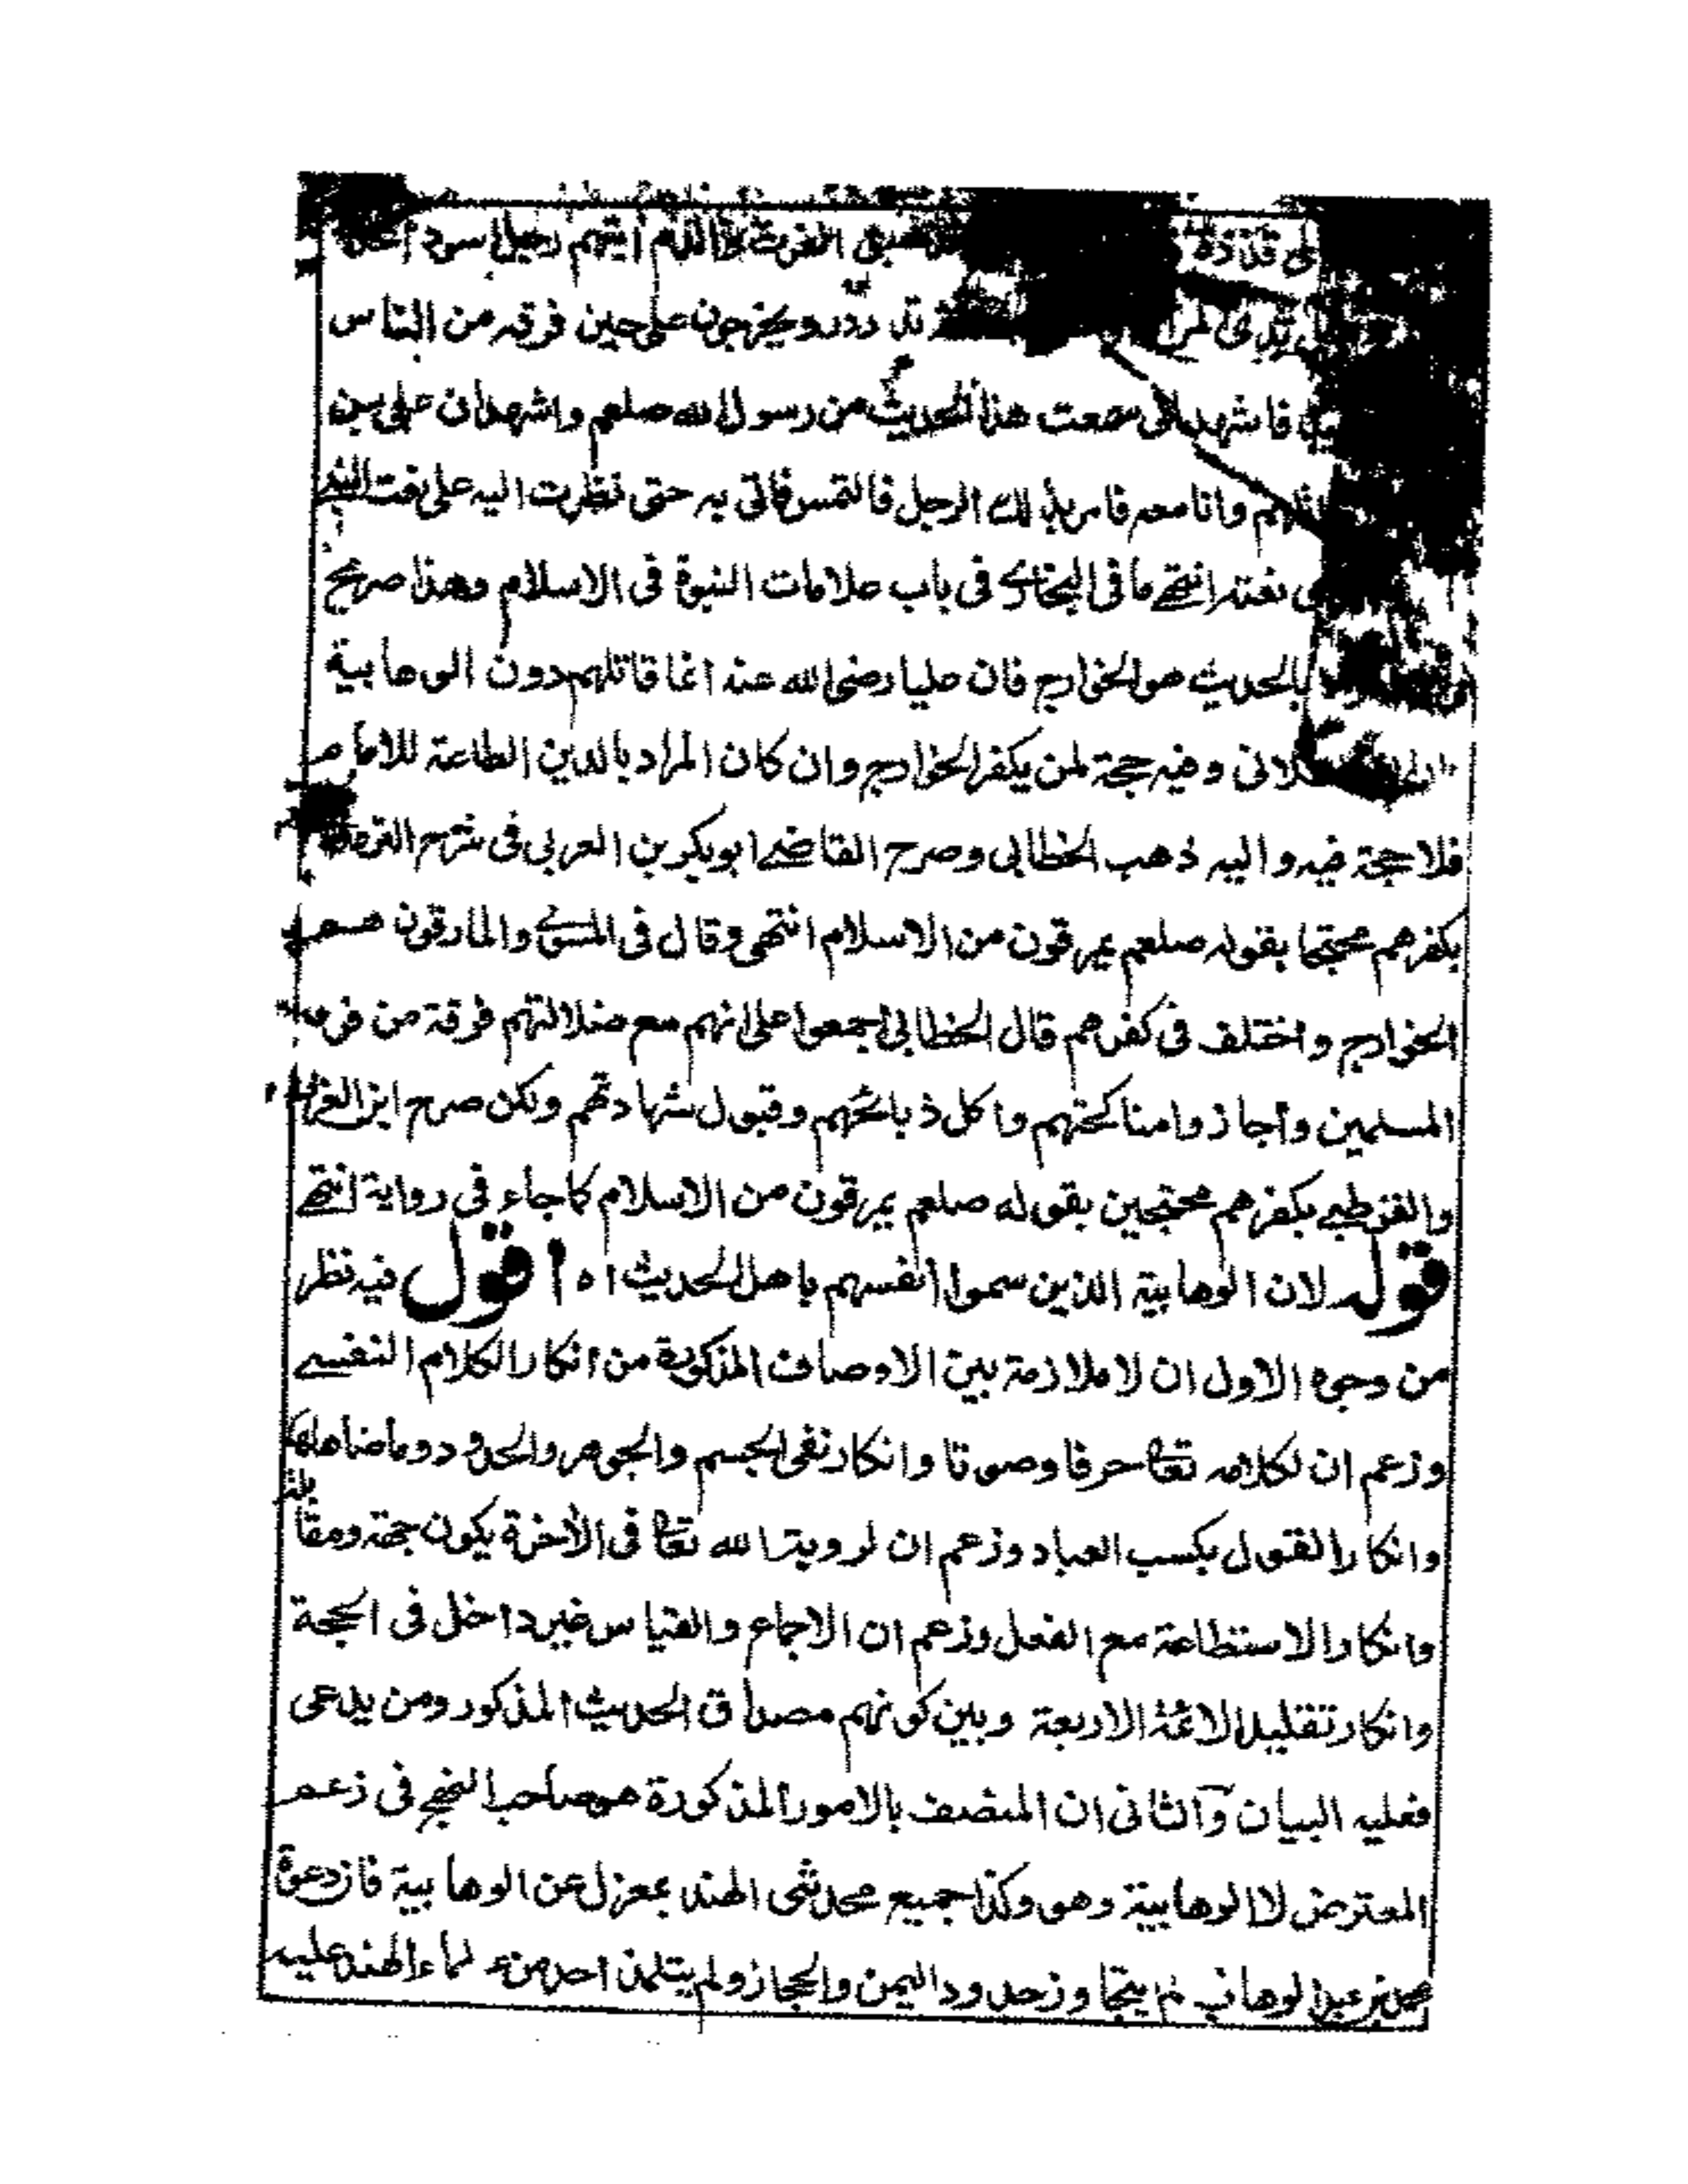 الى قذذه سبق الفرث والدم ايتهم رجل اسود احدى
تدردر ويخرجون على حين فرقة من الناس
فاشهد انى سمعت هذا الحديث من رسول الله صلعم واشهد ان على بن
قاتلهم وانا معه فامر بذلك الرجل فالتمس فاتى به حتى نظرت اليه على نعت النبى
نعته انتهى ما فى البخارى فى باب علامات النبوة فى الاسلام وهذا صريح
بالحديث هو الخوارج فان عليا رضى الله عنه انما قاتلهم دون الوهابية
وفيه حجة لمن يكفر الخوارج وان كان المراد بالدين الطاعة للامام
فلا حجة فيه واليه ذهب الخطابى وصرح القاضى ابو بكر بن العربى فى شرح الترمذى
بكفرهم محتجا بقوله صلعم يمرقون من الاسلام انتهى وقال فى المسوى والمارقون هم
الخوارج واختلف فى كفرهم قال الخطابى اجمعوا على انهم مع ضلالتهم فرقة من فرق
المسلمين واجازوا مناكحتهم واكل ذبائحهم وقبول شهادتهم ولكن صرح ابن العربى
والقرطبى بكفرهم محتجين بقوله صلعم يمرقون من الاسلام كما جاء فى رواية انتهى
قوله لان الوهابية الذين سموا انفسهم باهل الحديث اه اقول فيه نظر
من وجوه الاول ان لا ملازمة بين الاوصاف المذكورة من انكار الكلام النفسى
وزعم ان لكلامه تعالى حرفا وصوتا وانكار نفى الجسم والجوهر والحدود وما ضاهاها
وانكار القول بكسب العباد وزعم ان لرويته الله تعالى فى الآخرة يكون جهة ومقابلة
وانكار الاستطاعة مع الفعل وزعم ان الاجماع والقياس غير داخل فى الحجة
وانكار تقليد الائمة الاربعة وبين كونهم مصداق الحديث المذكور ومن يدعى
فعليه البيان والثانى ان المتصف بالامور المذكورة هو صاحب النهج فى زعم
المعترض لا الوهابية وهو وكذا جميع محدثى الهند بمعزل عن الوهابية فان دعوة
محمد بن عبد الوهاب لم يتجاوز حدود اليمن والحجاز ولم يتلمذ احد من علماء الهند عليه